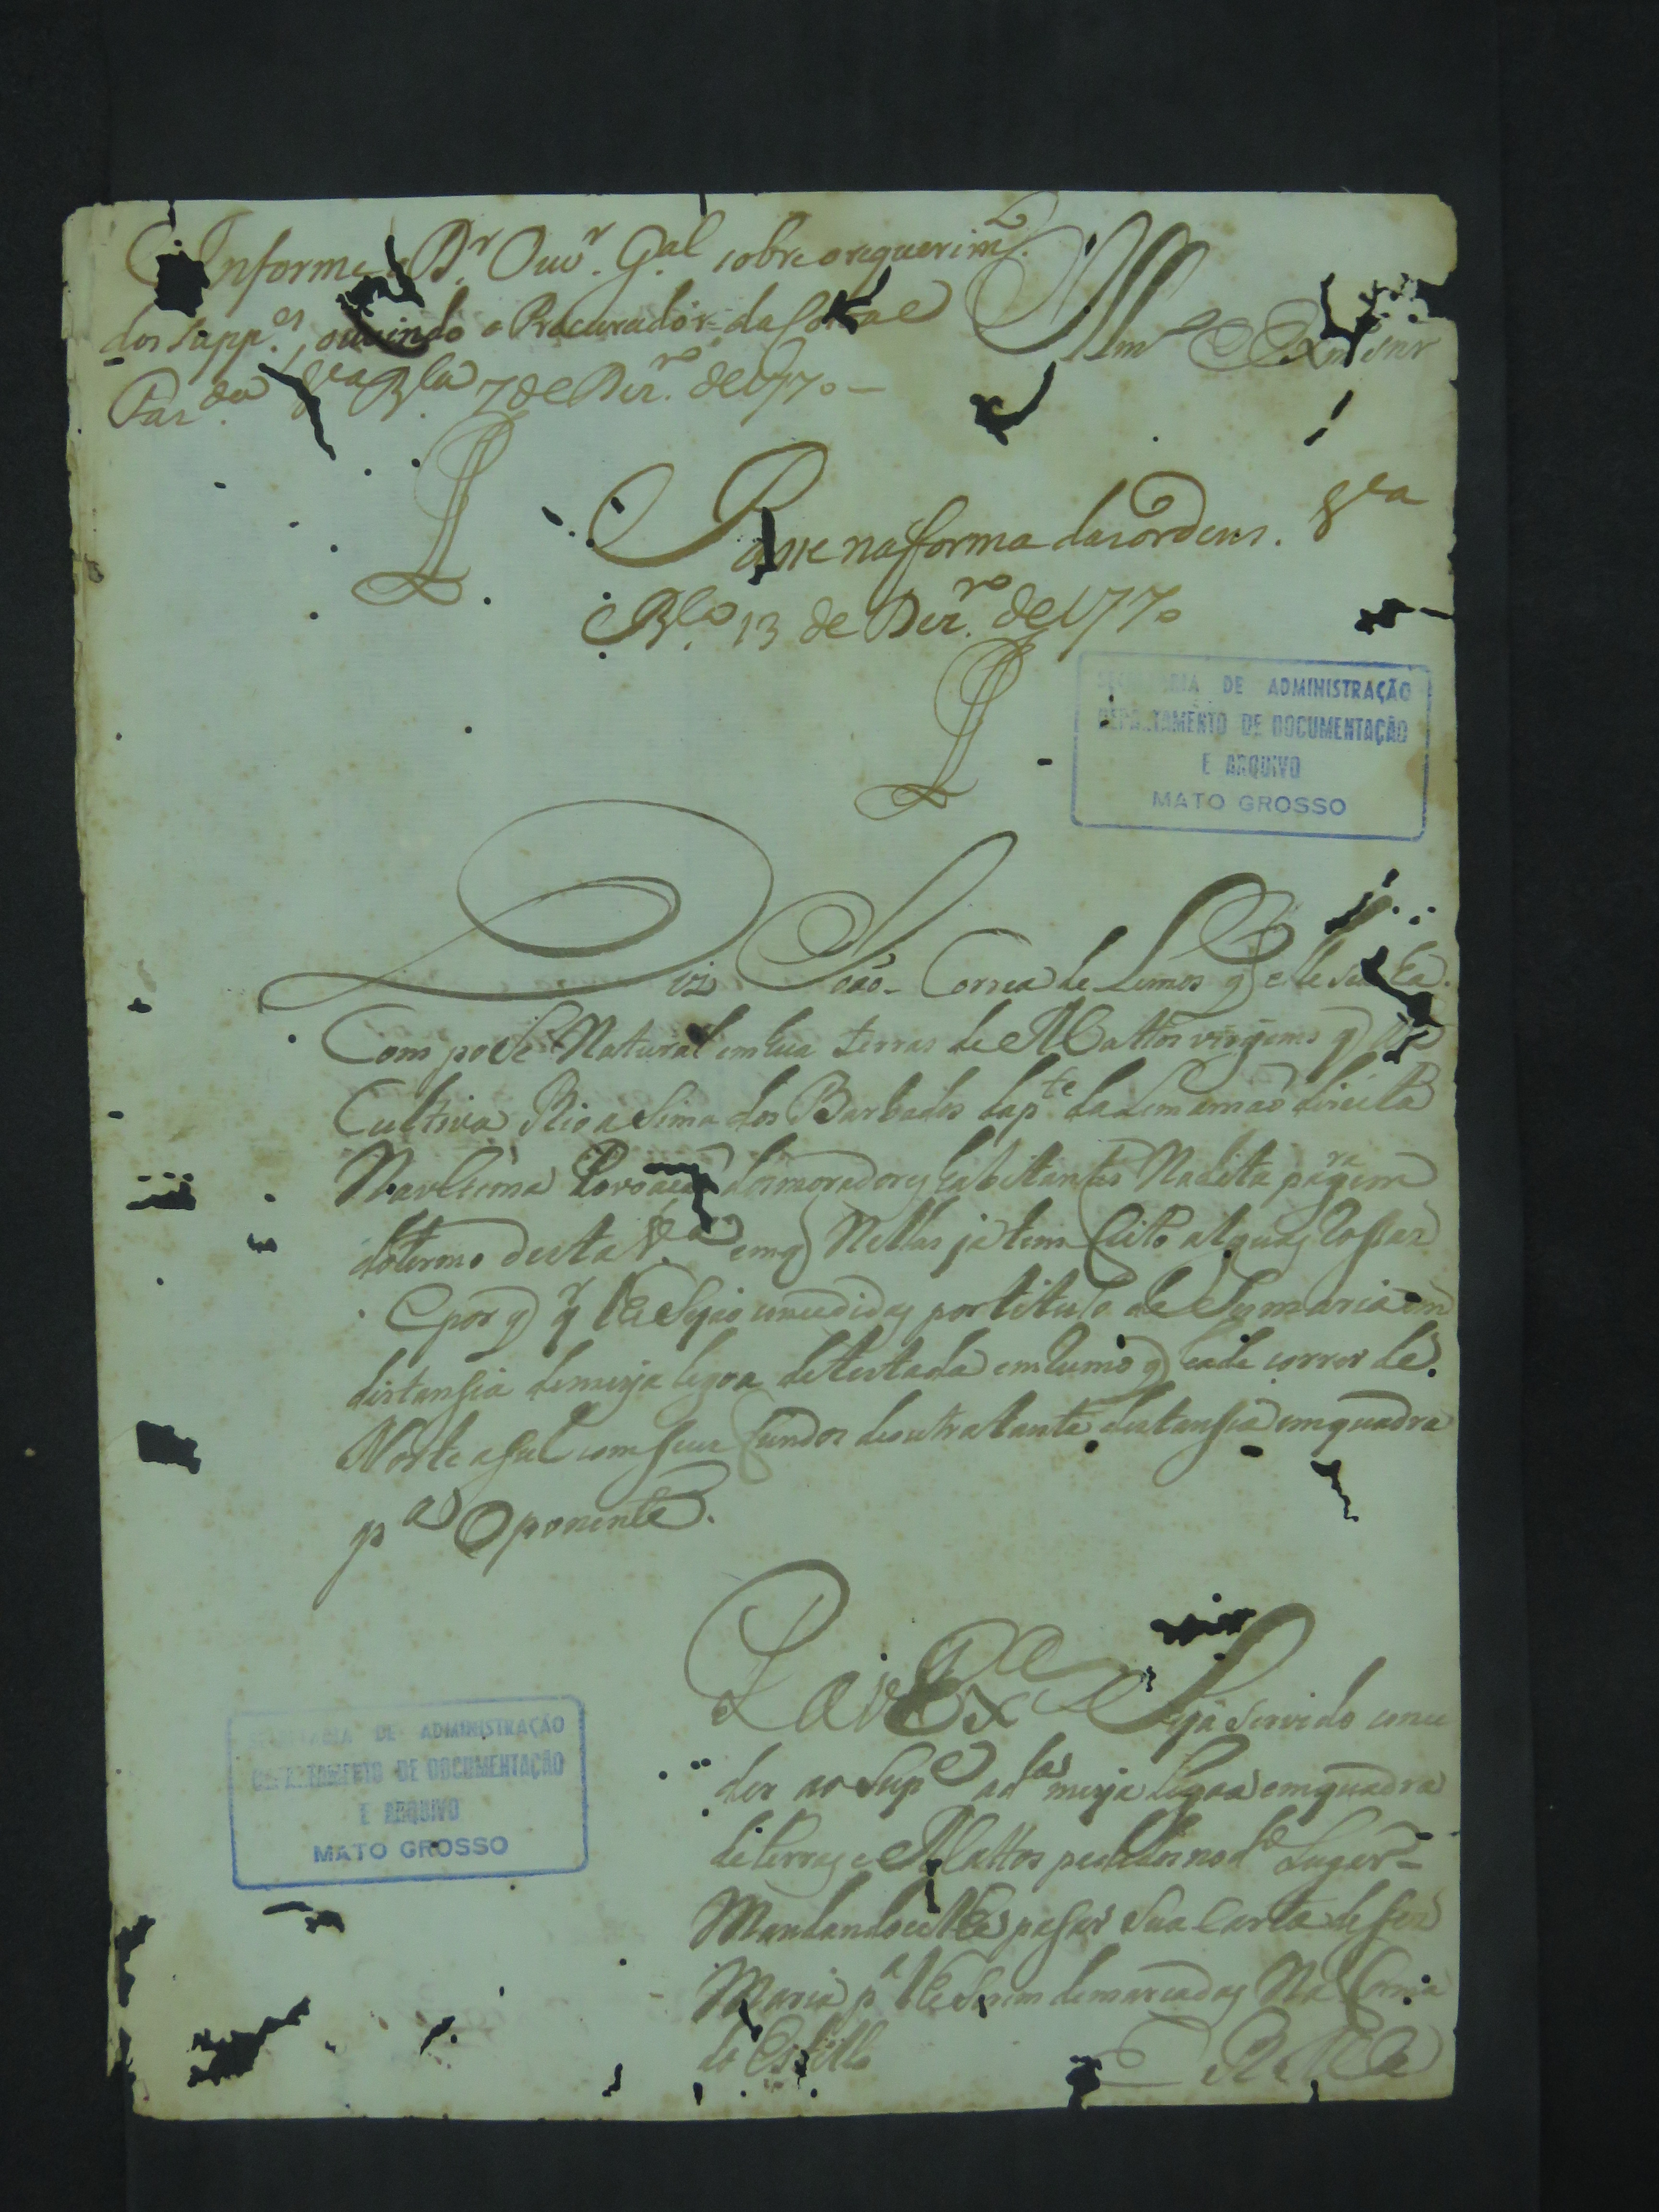 Informe o D.r Ouv.r G.al sobre o requerim.to
dos Supp.es, ouvindo o Procurador da Coroa e
Faz.da V.a B.la 7 de Dez.ro de 1770 —
Illm.o e Exm.o Snr
Passe na forma das ordens. V.a
B.la 13 de Dez.ro de 1770
SECRETARIA DE ADMINISTRAÇÃO
DEPARTAMENTO DE DOCUMENTAÇÃO
E ARQUIVO
MATO GROSSO
Diz João Correa de Lemos q elle
Com pose Natural em hua terras de Mattos virgens q
Cultiva Rio asima dos Barbados da p.te da mão direita
dos moradores habitantes Na dita paragem
do termo desta V.a em q Nellas já tem feito algúas Rossas
E por q q.r lhe Sejão concedidas por titulo de Sysmaria em
distansia de meya legoa de testada em Rumo q ha de correr de
Norte a Sul com seus fundos de outra tanta distansia em quadra
p.a O ponente.
P. a V. Ex.ce Seja Servido conce
der ao Sup.e a d.a meya Legoa em quadra
de terras e Mattos pedidos no d.o Lugar
Mandandoce lhe pasar Sua Carta de Ses
Maria p.a lhe Serem demarcadas Na forma
do Estillo
E R M.ce
SECRETARIA DE ADMINISTRAÇÃO
DEPARTAMENTO DE DOCUMENTAÇÃO
E ARQUIVO
MATO GROSSO